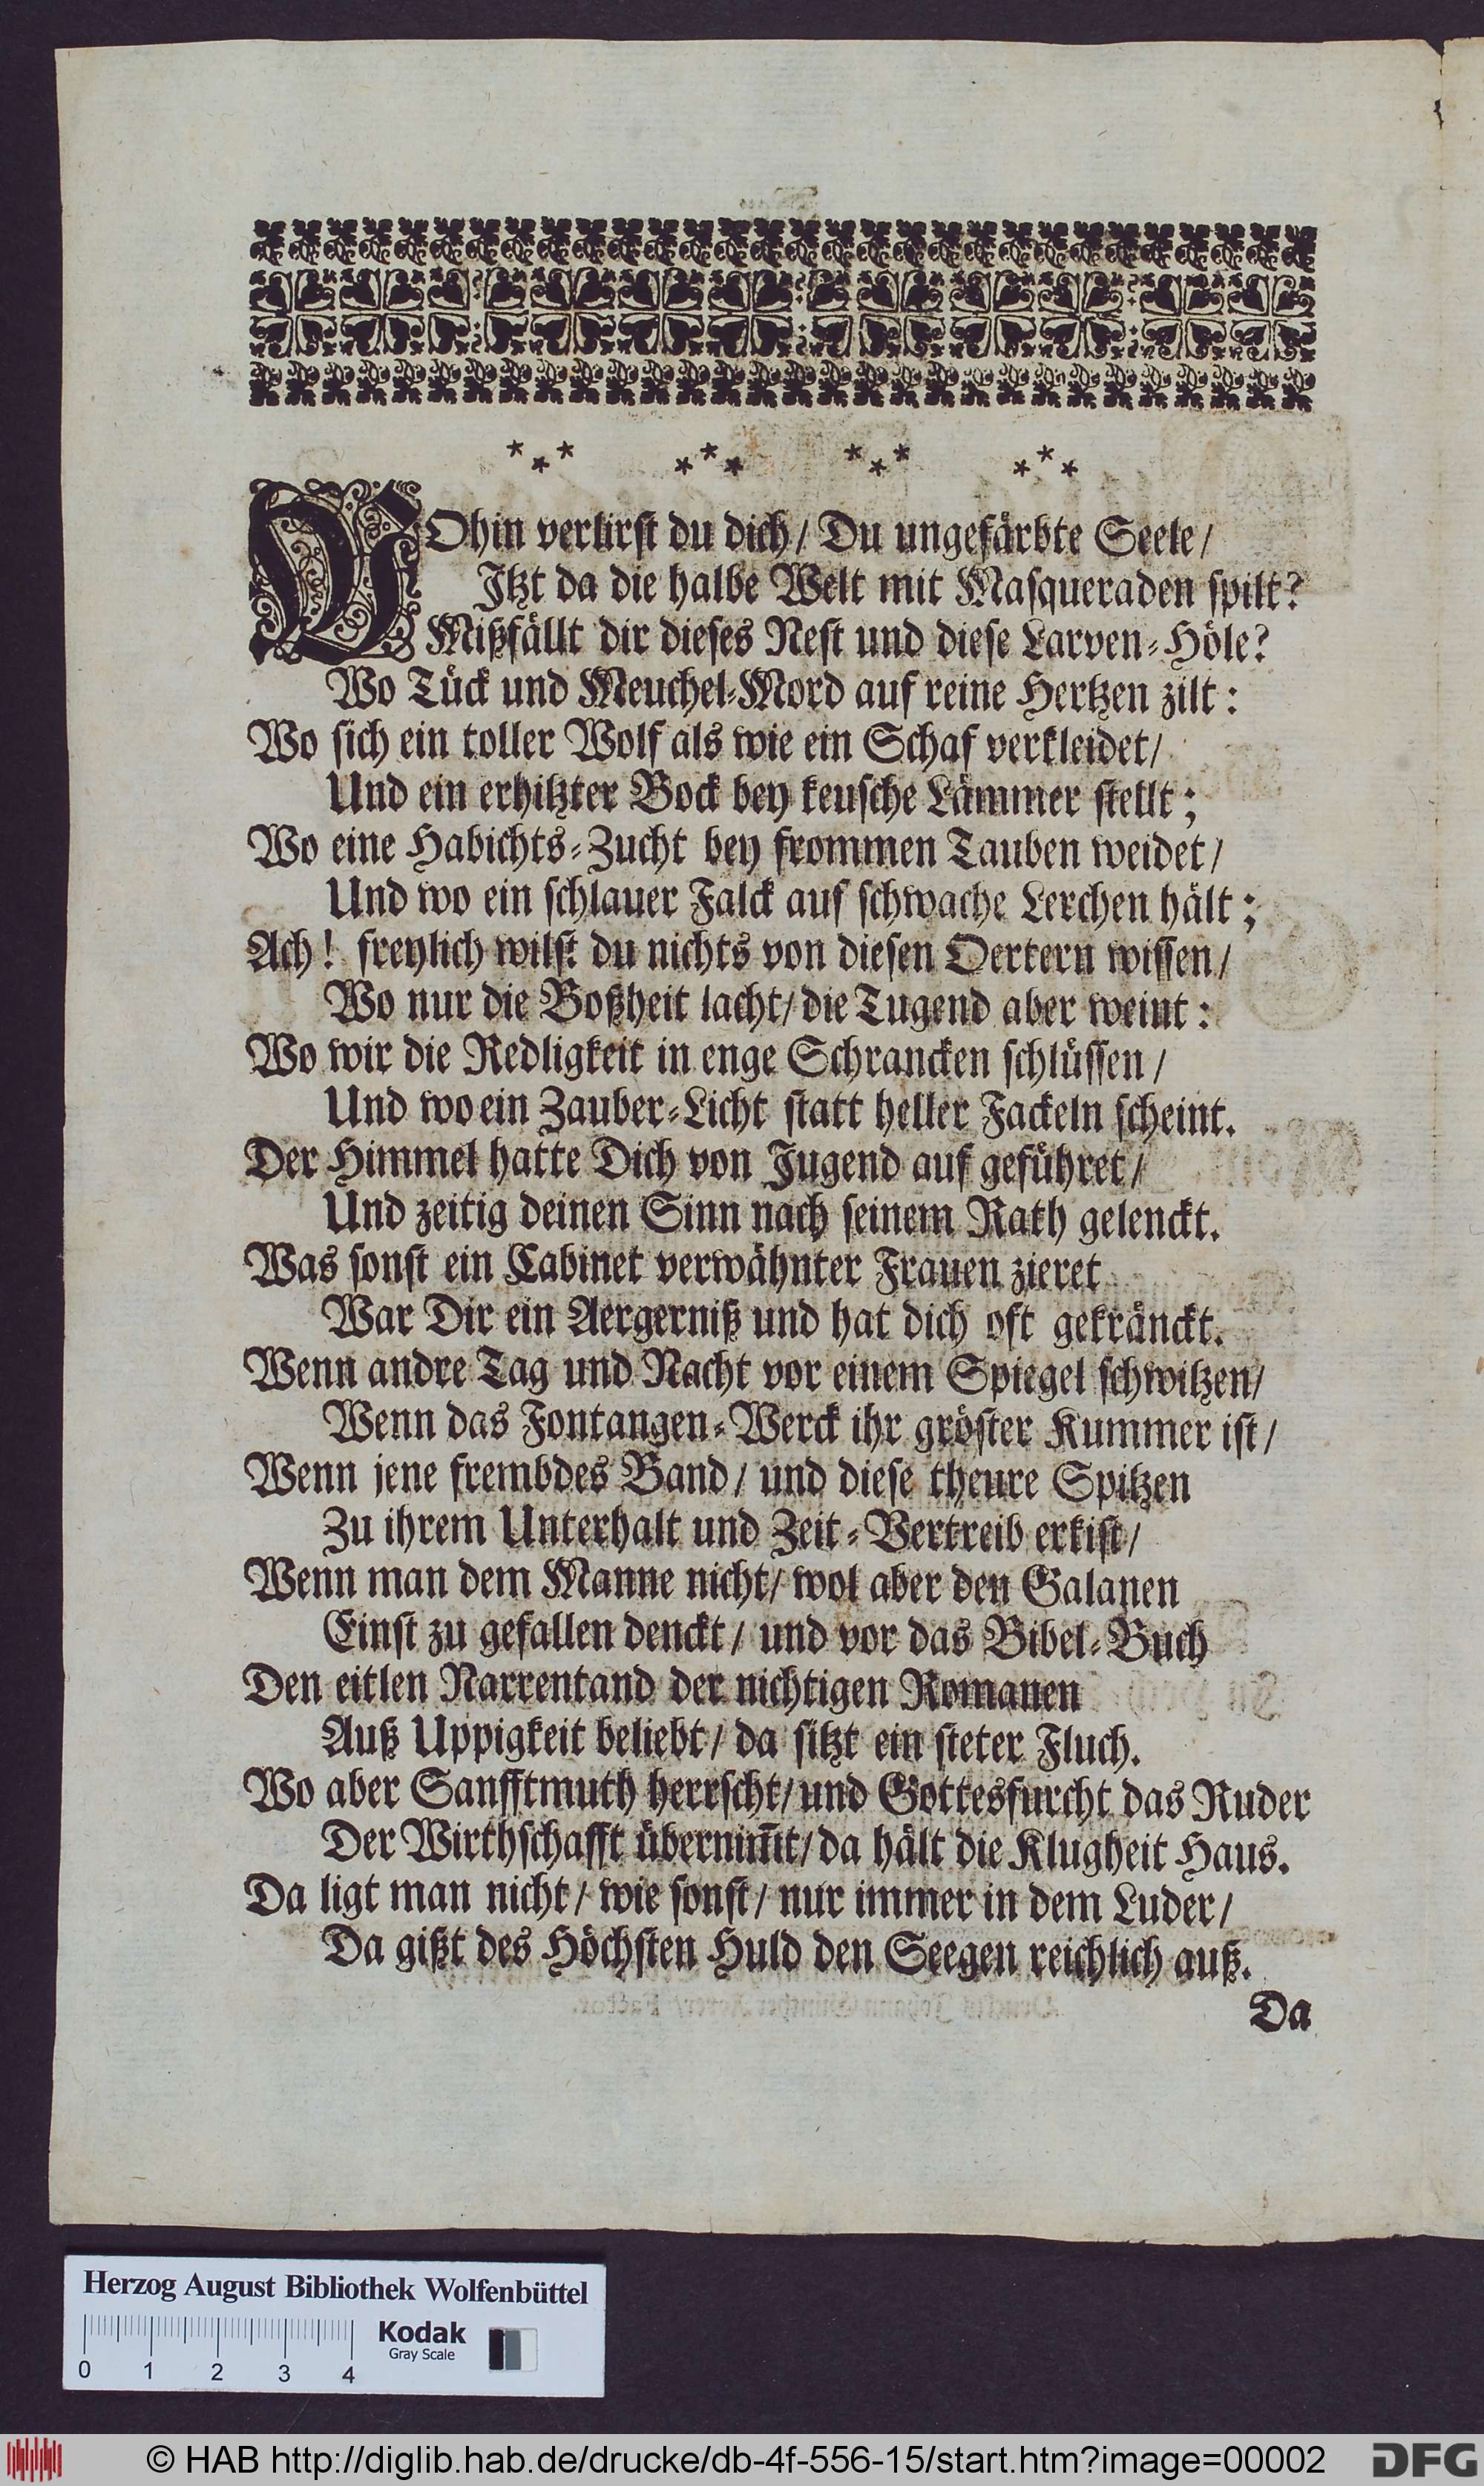 WOhin verlirst du dich / Du ungefärbte Seele /
Jtzt da die halbe Welt mit Masqueraden spilt?
Mißfällt dir dieses Nest und diese Larven-Höle?
Wo Tück und Meuchel-Mord auf reine Hertzen zilt:
Wo sich ein toller Wolf als wie ein Schaf verkleidet/
Und ein erhitzter Bock bey keusche Lämmer stellt;
Wo eine Habichts-Zucht bey frommen Tauben weidet /
Und wo ein schlauer Falck auf schwache Lerchen hält;
Ach! freylich wilst du nichts von diesen Oertern wissen /
Wo nur die Boßheit lacht / die Tugend aber weint:
Wo wir die Redligkeit in enge Schrancken schlüssen /
Und wo ein Zauber-Licht statt heller Fackeln scheint.
Der Himmel hatte Dich von Jugend auf geführet /
Und zeitig deinen Sinn nach seinem Rath gelenckt.
Was sonst ein Cabinet verwähnter Frauen zieret
War Dir ein Aergerniß und hat dich oft gekränckt.
Wenn andre Tag und Nacht vor einem Spiegel schwitzen /
Wenn das Fontangen-Werck ihr gröster Kummer ist /
Wenn jene frembdes Band / und diese theure Spitzen
Zu ihrem Unterhalt und Zeit-Vertreib erkist /
Wenn man dem Manne nicht / wol aber den Galanen
Einst zu gefallen denckt / und vor das Bibel-Buch
Den eitlen Narrentand der nichtigen Romanen
Auß Uppigkeit beliebt / da sitzt ein steter Fluch.
Wo aber Sanfftmuth herrscht / und Gottesfurcht das Ruder
Der Wirthschafft übernim̃t / da hält die Klugheit Haus.
Da ligt man nicht / wie sonst / nur immer in dem Luder /
Da gißt des Höchsten Huld den Seegen reichlich auß.
Da
Herzog August Bibliothek Wolfenbüttel
Kodak
Gray Scale
0 1 2 3 4
© HAB http://diglib.hab.de/drucke/db-4f-556-15/start.htm?image=00002
DFG